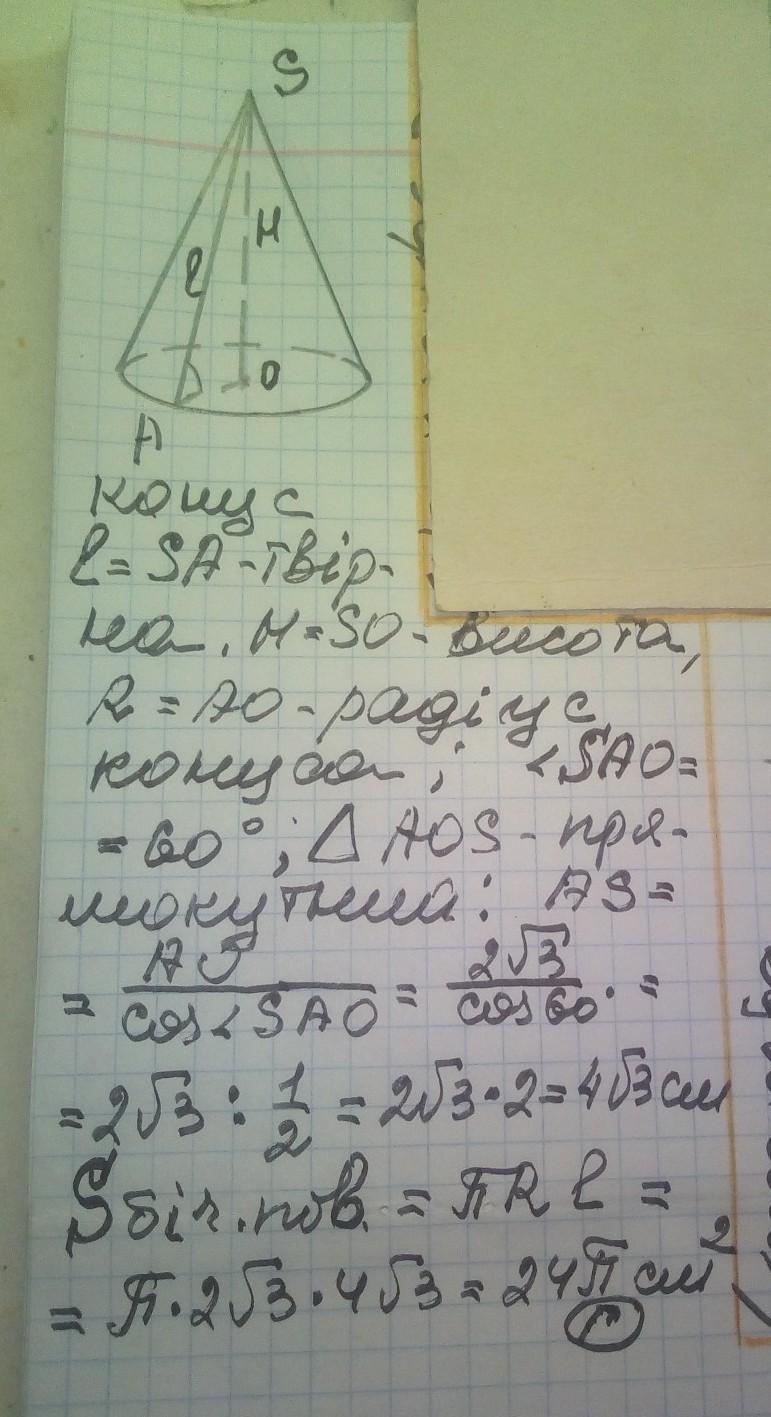 S
H
l
O
A
конус
l = SA - твір-
на, H = SO - висота,
R = AO - радіус
конуса; ∠SAO =
= 60°; △ AOS - пря-
мокутний: AS =
= AO / cos∠SAO = 2√3 / cos60° =
= 2√3 : 1/2 = 2√3 · 2 = 4√3 см
Sбіч.пов. = πRl =
= π · 2√3 · 4√3 = 24π см²
Г